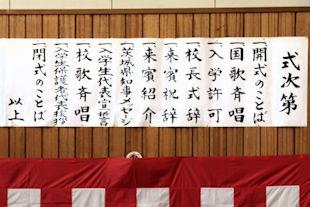 式次第
一開式のことば
一国歌斉唱
一入学許可
一校長式辞
一来賓祝辞
一来賓紹介
一茨城県知事メッセージ
一入学生代表宣誓
一校歌斉唱
一入学生保護者代表挨拶
一閉式のことば
以上